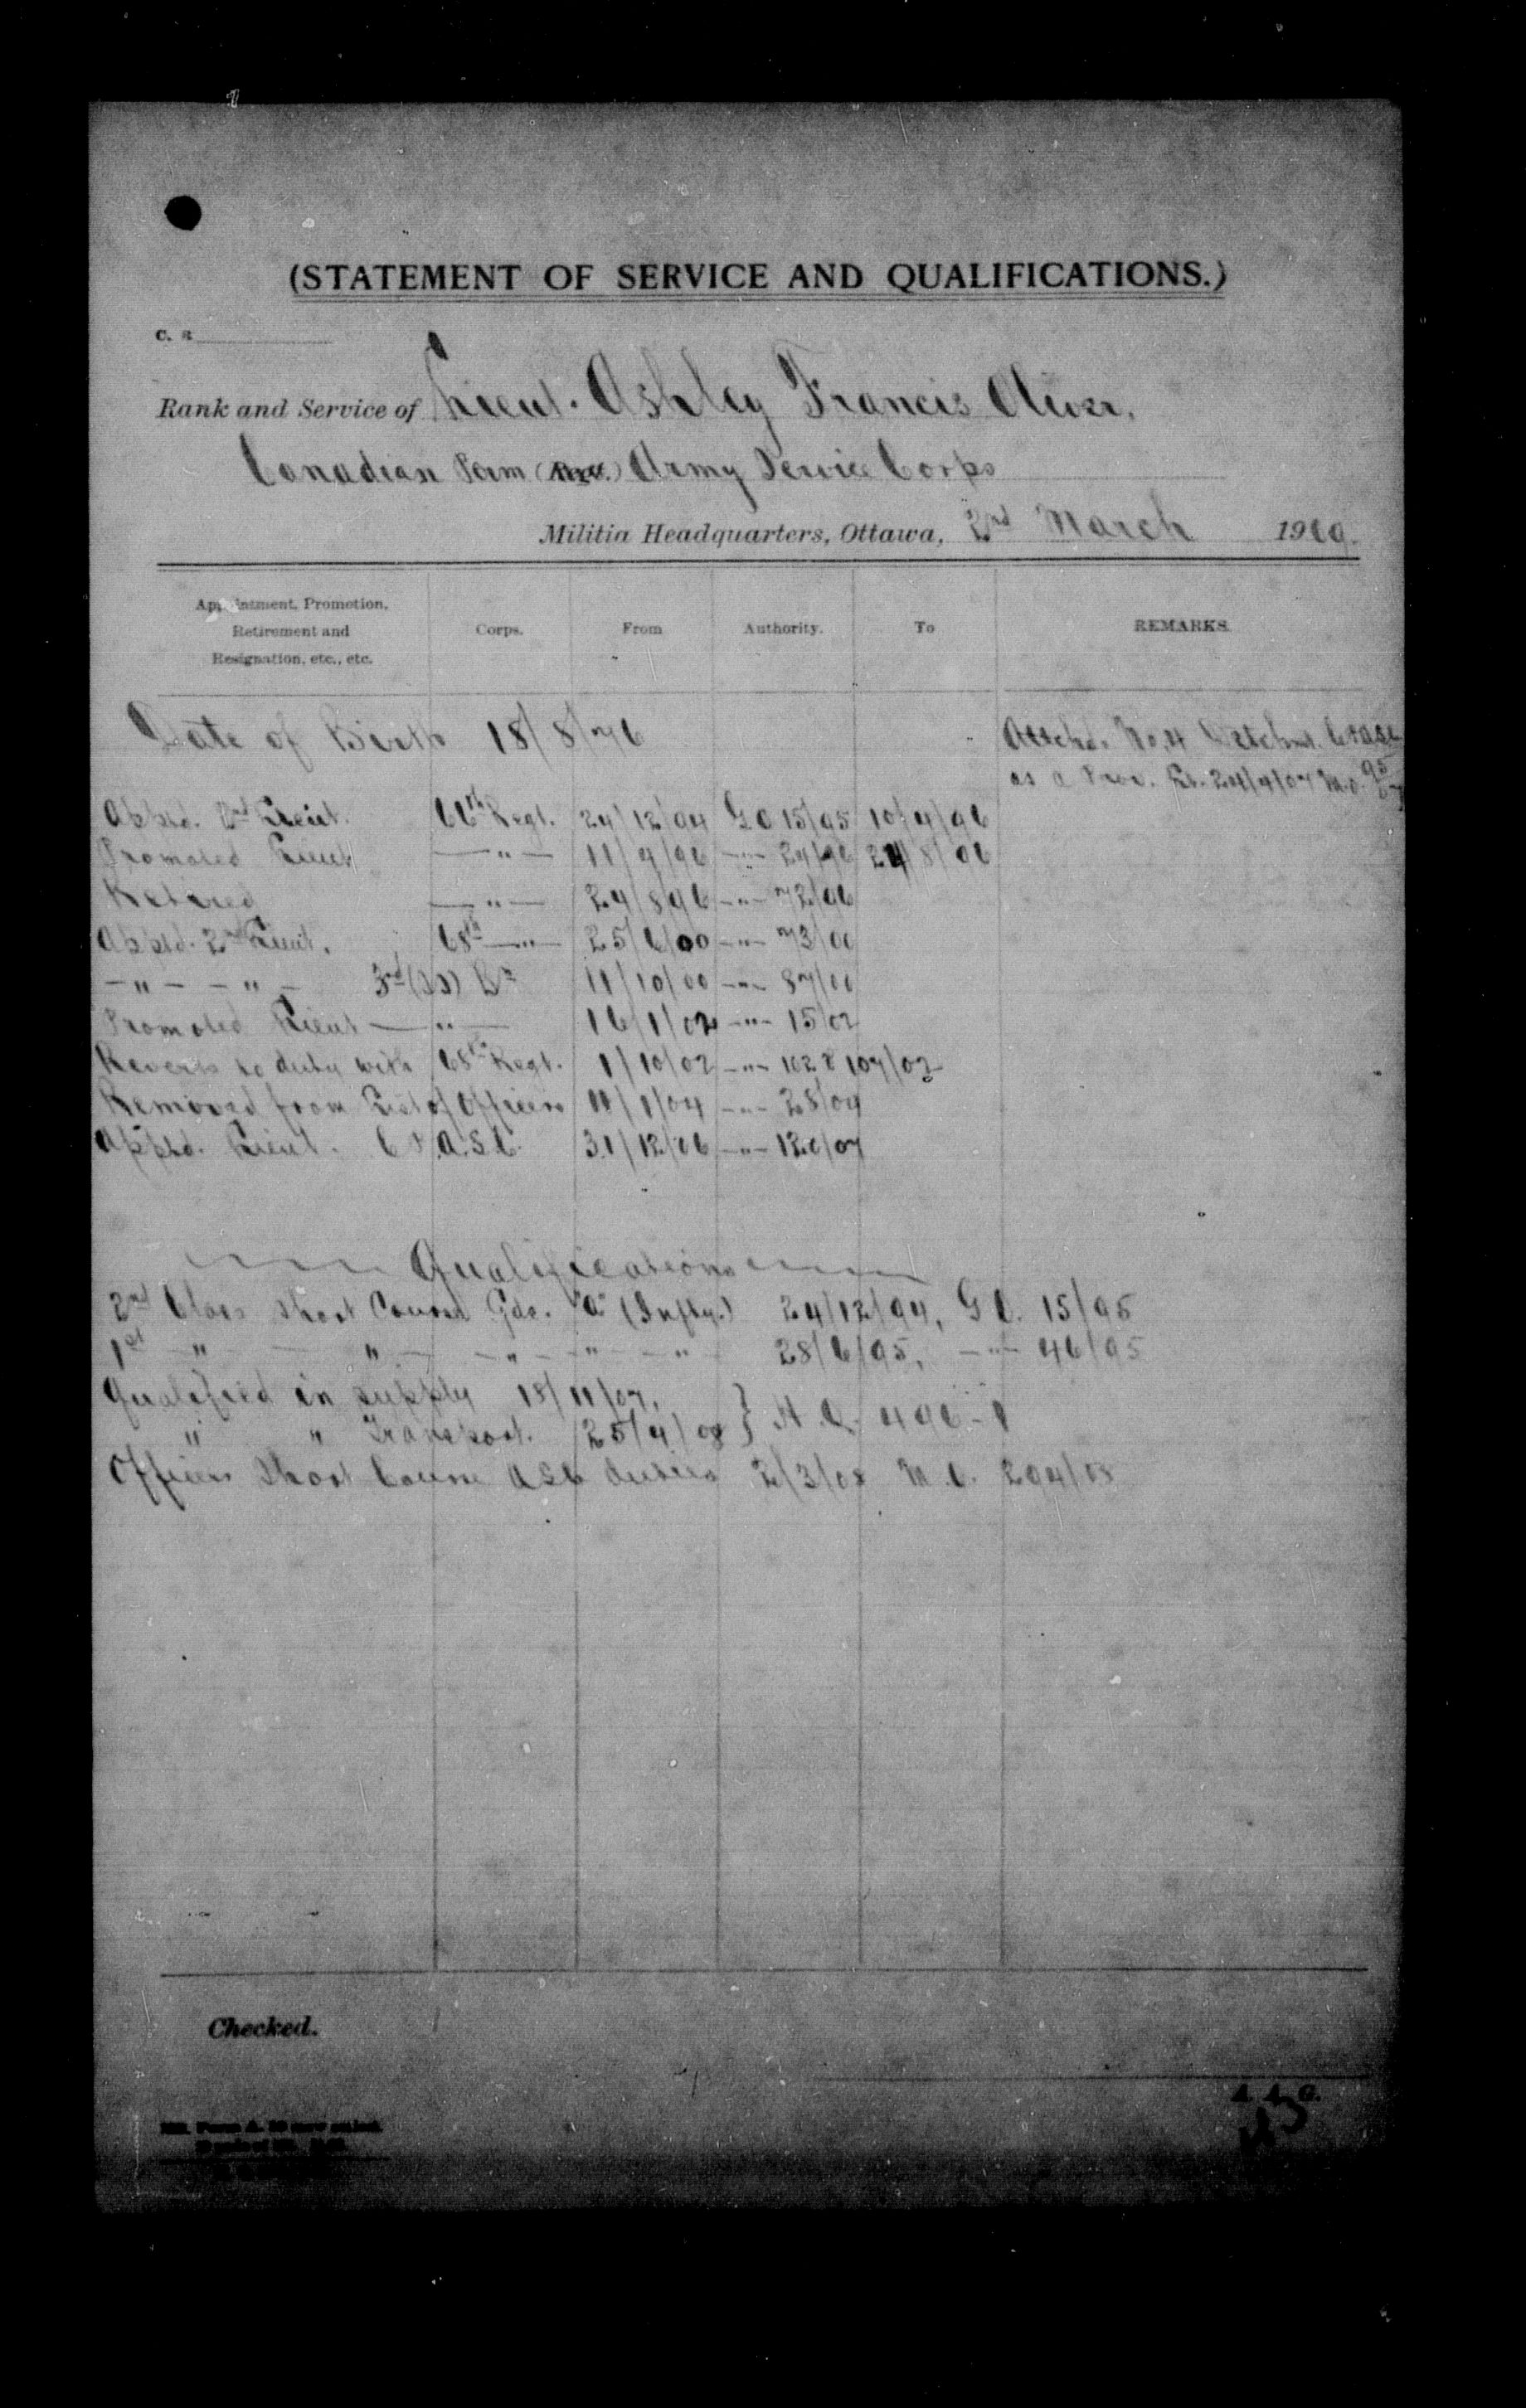 (STATEMENT OF SERVICE AND QUALIFICATIONS.)
C. R.
Rank and Service of Lieut. Ashley Francis Oliver.
Canadian Perm Army Service Corps
Militia Headquarters, Ottawa, 2nd March 1909.
Appointment, Promotion, Retirement and Resignation, etc., etc. Corps. From Authority. To REMARKS
Date of Birth 18/8/76
Attchd. No. 4 Detchmt. CPASC
as a Prov. Lt. 24/4/07 M.O. 95/07
Apptd. 2nd Lieut. 66th Regt. 24/12/94 G O 15/95 10/4/96
Promoted Lieut —"— 11/4/96 —"— 24/96 24/8/96
Retired —"— 24/8/96 —"— 72/96
Apptd. 2nd Lieut. 68th —"— 25/6/00 —"— 73/00
—"— —"— 3rd (SS) Bn 11/10/00 —"— 87/00
Promoted Lieut —"— 16/1/02 —"— 15/02
Reverts to duty with 68th Regt. 1/10/02 —"— 102 & 107/02
Removed from List of Officers 11/1/04 —"— 28/04
Apptd. Lieut. C P.A.S.C. 31/12/06 —"— 120/07
Qualifications
2nd Class Short Course Gde. "A" (Infty.) 24/12/94, G O. 15/95
1st " " " " " 28/6/95, —"— 46/95
Qualified in supply 18/11/07,
" " Transport. 25/4/08 } H.Q. 496-1
Officers Short Course ASC duties 2/3/08 M.O. 204/08
Checked.
A. A. G.